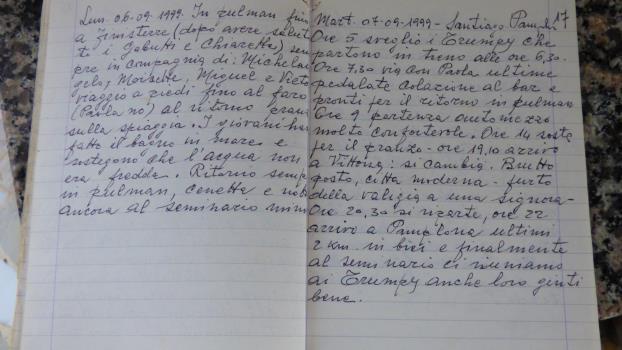 Lun. 06-09-1999. In pulman fino
a Finisterre (dopo avere salutato
ti i Gabutti e Chiaretta) sem
pre in compagnia di: Michelan
gela, Moisette, Miguel e
viaggio a piedi fino al faro
(Paola no) al ritorno pranzo
sulla spiaggia. I giovani han
fatto il bagno in mare e
sostegono che l'acqua non
era fredda. Ritorno sempre
in pulman, cenetta e notte
ancora al seminario
17
Mart. 07-09-1999 - Santiago
Ore 5 sveglio i Trumpy che
partono in treno alle ore 6,30.
Ore 7,30 via con Paola ultime
pedalate colazione al bar e
pronti per il ritorno in pulman
Ore 9 partenza automezzo
molto confortevole. Ore 14 sosta
per il pranzo - ore 19,10 arrivo
a Vittoria: si cambia. Brutto
posto, città moderna - furto
della valigia a una signora -
Ore 20,30 si riparte, ore 22
arrivo a Pamplona ultimi
2 km. in bici e finalmente
al seminario ci riuniamo
ai Trumpy anche loro giunti
bene.